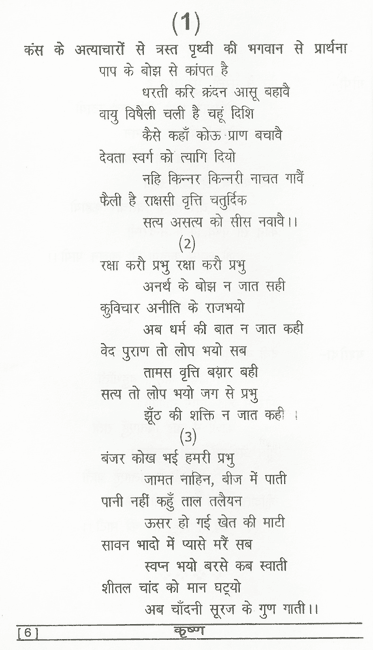 (1)
कंस के अत्याचारों से त्रस्त पृथ्वी की भगवान से प्रार्थना
पाप के बोझ से कांपत है
धरती करि क्रंदन आसू बहावै
वायु विषैली चली है चहूं दिशि
कैसे कहाँ कोऊ प्राण बचावै
देवता स्वर्ग को त्यागि दियो
नहि किन्नर किन्नरी नाचत गावैं
फैली है राक्षसी वृत्ति चतुर्दिक
सत्य असत्य को सीस नवावै।।
(2)
रक्षा करौ प्रभु रक्षा करौ प्रभु
अनर्थ के बोझ न जात सही
कुविचार अनीति के राजभयो
अब धर्म की बात न जात कही
वेद पुराण तो लोप भयो सब
तामस वृत्ति बय़ार बही
सत्य तो लोप भयो जग से प्रभु
झूँठ की शक्ति न जात कही ।
(3)
बंजर कोख भई हमरी प्रभु
जामत नाहिन, बीज में पाती
पानी नहीं कहुँ ताल तलैयन
ऊसर हो गई खेत की माटी
सावन भादो में प्यासे मरैं सब
स्वप्न भयो बरसे कब स्वाती
शीतल चांद को मान घट्यो
अब चाँदनी सूरज के गुण गाती।।
[6] कृष्ण